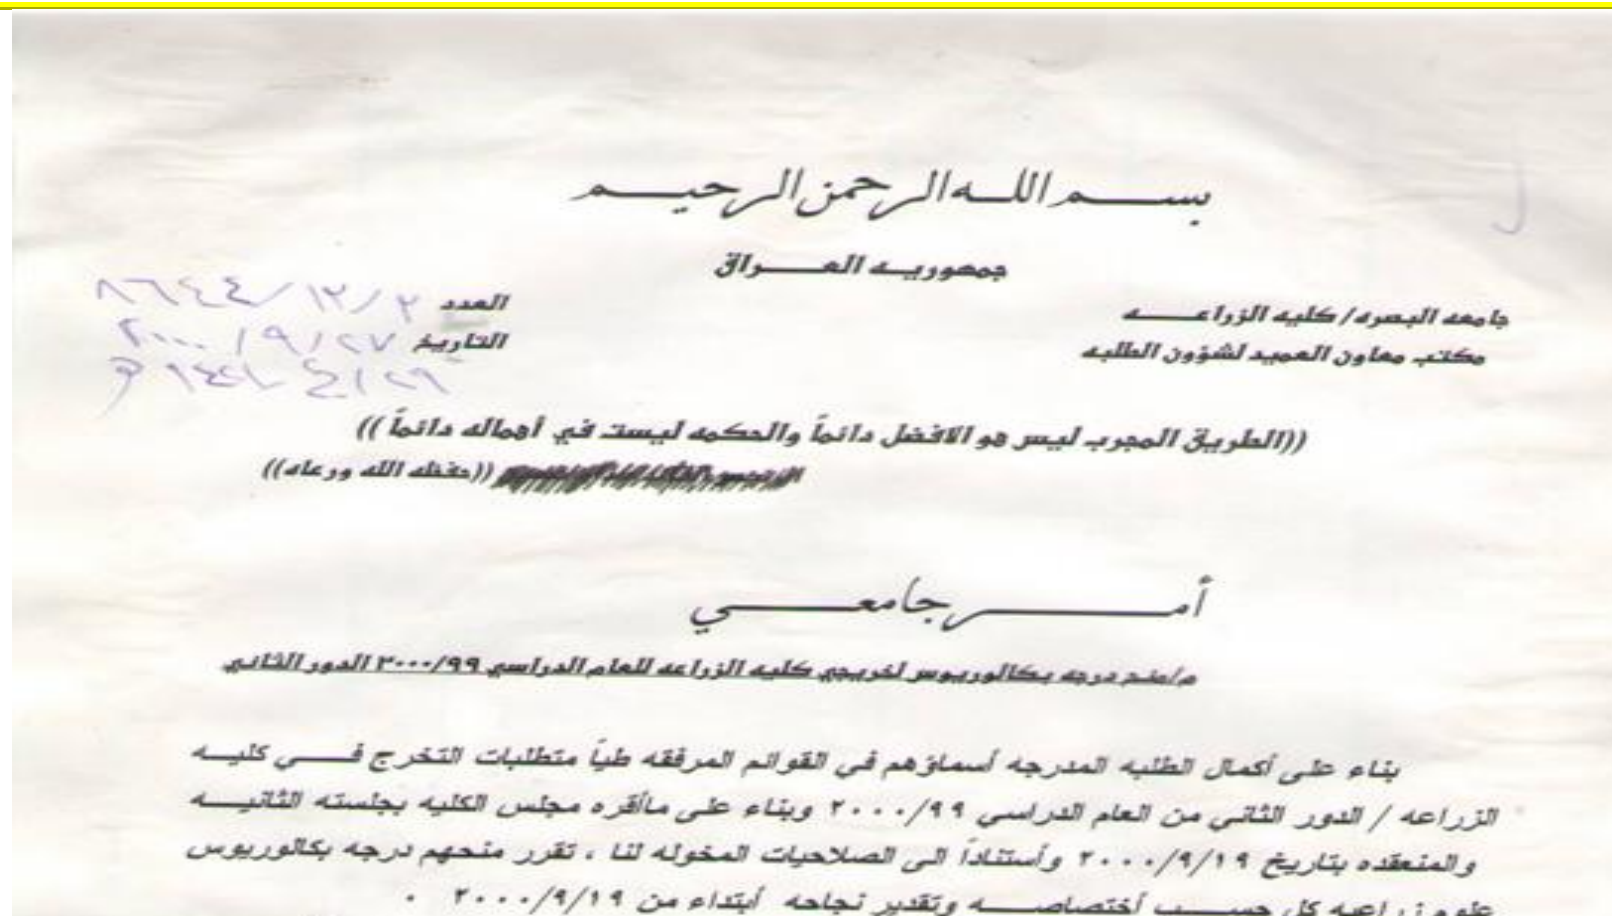 بســـم اللـه الرحمن الرحيـــم
جمهوريـه العـــراق
جامعه البصره/كليه الزراعـــه
العدد ٨٦٤٤/١٢/٢
مكتب معاون العميد لشؤون الطلبه
التاريخ ٢٠٠٠/٩/٢٧
((الطريق المجرب ليس هو الافضل دائماً والحكمه ليست في أهماله دائماً))
((حفظه الله ورعاه))
أمـــر جامعـــي
م/منح درجه بكالوريوس لخريجي كليه الزراعه للعام الدراسي ٢٠٠٠/٩٩ الدور الثاني
بناء على أكمال الطلبه المدرجه أسماؤهم في القوائم المرفقه طياً متطلبات التخرج فـــي كليـــه
الزراعه / الدور الثاني من العام الدراسي ٢٠٠٠/٩٩ وبناء على ماأقره مجلس الكليه بجلسته الثانيـــه
والمنعقده بتاريخ ٢٠٠٠/٩/١٩ وأستناداً الى الصلاحيات المخوله لنا ، تقرر منحهم درجه بكالوريوس
علوم زراعيه كل حســـب أختصاصـــه وتقدير نجاحه أبتداء من ٢٠٠٠/٩/١٩ .